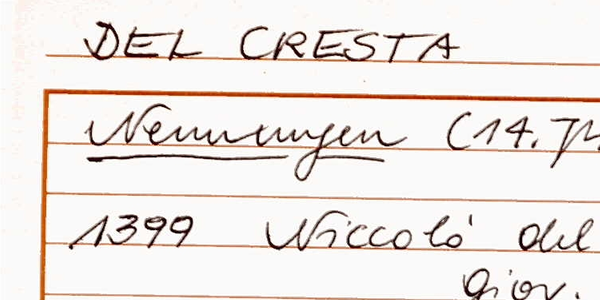 DEL CRESTA
Nennungen (14. Jh.
1399 Niccolò del
Giov.